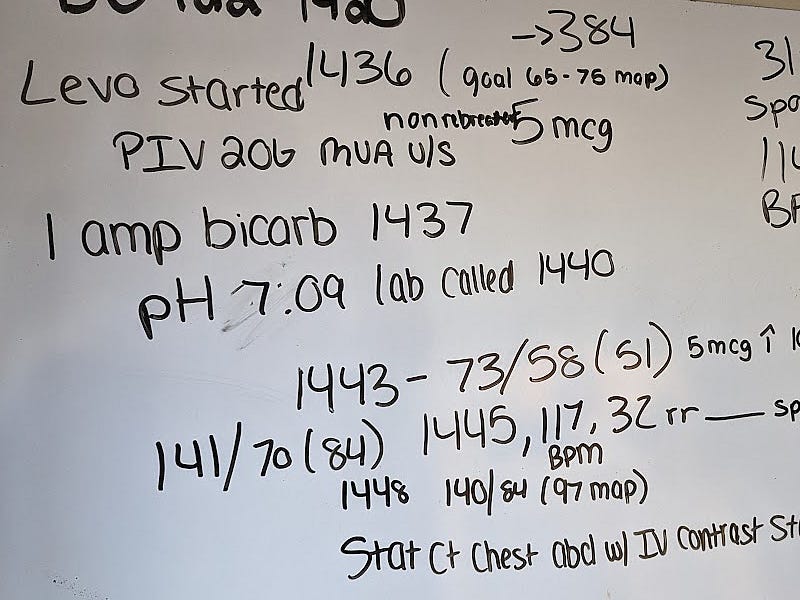 1420
->384
Levo started 1436 (goal 65-75 map)
nonrebreather 5 mcg
PIV 20G MUA U/S
1 amp bicarb 1437
pH 7:09 lab called 1440
1443- 73/58 (51) 5mcg ↑
141/70 (84) 1445, 117, 32 rr __ sp
BPM
1448 140/84 (97 map)
Stat Ct Chest abd w/ IV contrast St
31
spo
BP